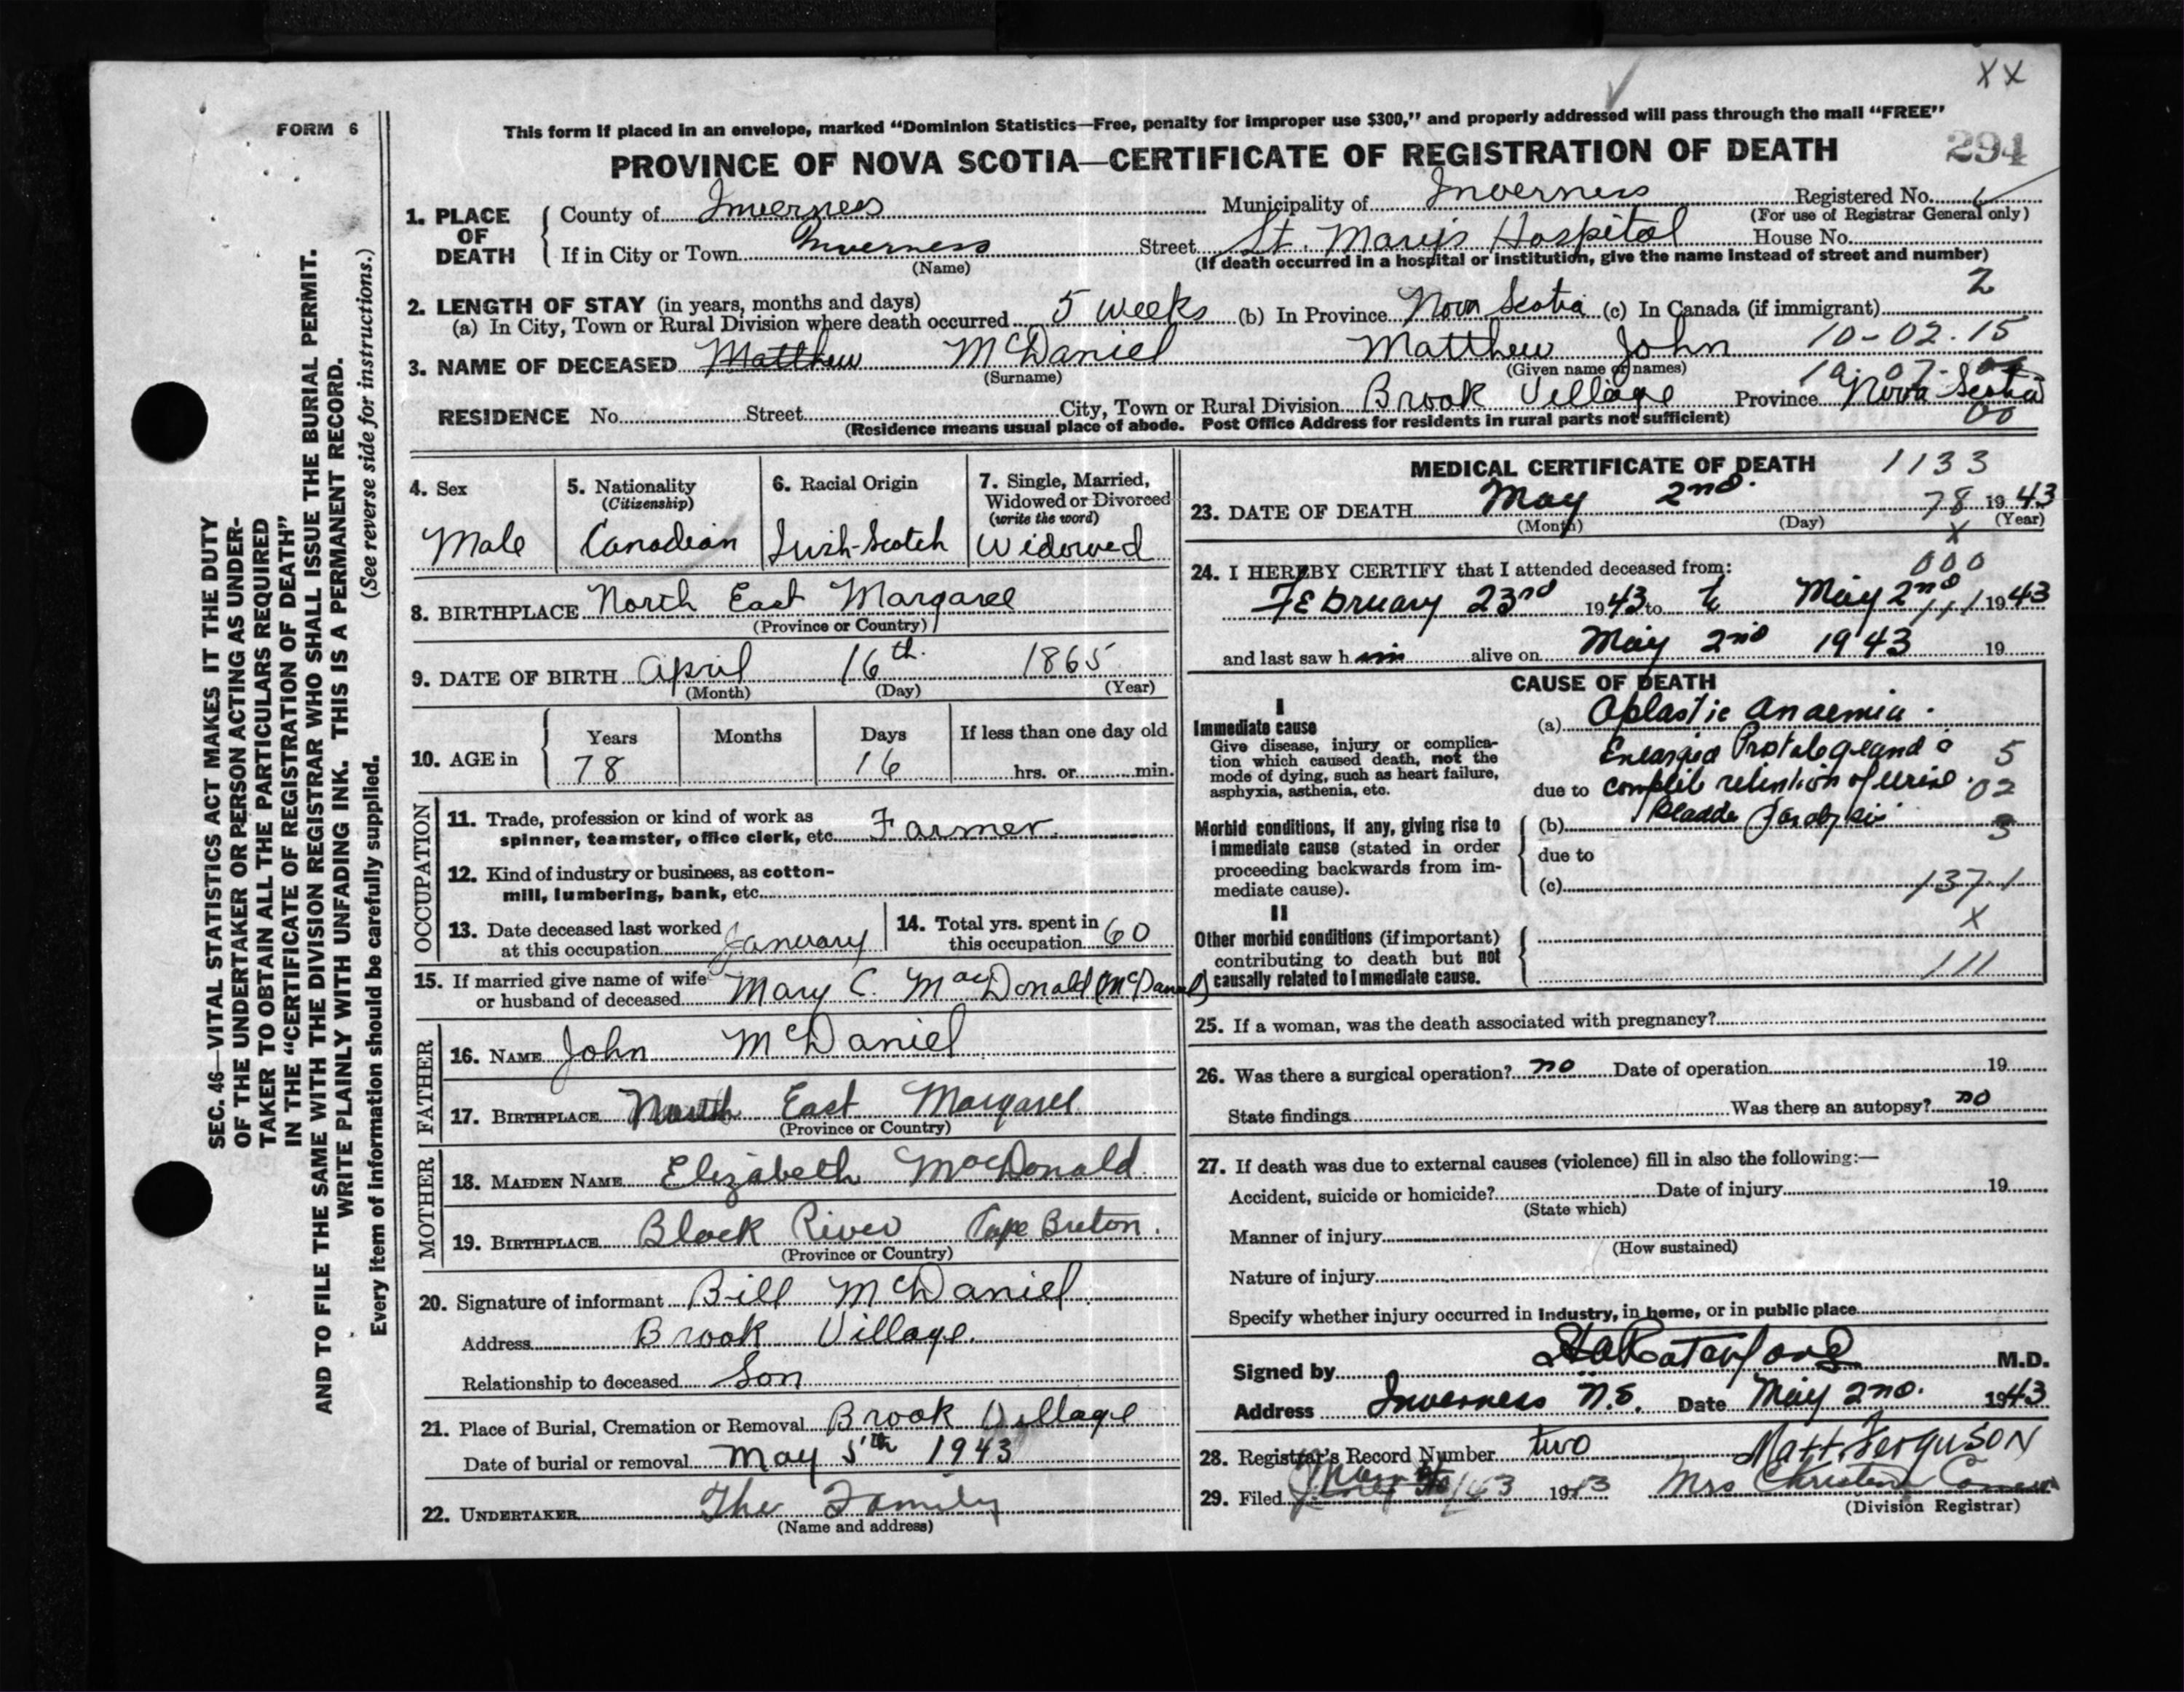 XX
FORM 6
This form if placed in an envelope, marked “Dominion Statistics—Free, penalty for improper use $300,” and properly addressed will pass through the mail “FREE”
PROVINCE OF NOVA SCOTIA—CERTIFICATE OF REGISTRATION OF DEATH 294
1. PLACE OF DEATH County of Inverness Municipality of Inverness Registered No.
(For use of Registrar General only)
If in City or Town Inverness Street St. Mary's Hospital House No.
(Name) (If death occurred in a hospital or institution, give the name instead of street and number)
2
2. LENGTH OF STAY (in years, months and days)
(a) In City, Town or Rural Division where death occurred 5 weeks (b) In Province Nova Scotia (c) In Canada (if immigrant)
10-02.15
3. NAME OF DECEASED Matthew McDaniel Matthew John
(Surname) (Given name or names)
RESIDENCE No. Street City, Town or Rural Division Brook Village Province Nova Scotia
00
(Residence means usual place of abode. Post Office Address for residents in rural parts not sufficient)
4. Sex Male
5. Nationality (Citizenship) Canadian
6. Racial Origin Irish-Scotch
7. Single, Married, Widowed or Divorced (write the word) Widowed
8. BIRTHPLACE North East Margaree
(Province or Country)
9. DATE OF BIRTH April 16th. 1865
(Month) (Day) (Year)
10. AGE in Years Months Days If less than one day old
78 16 hrs. or min.
OCCUPATION
11. Trade, profession or kind of work as
spinner, teamster, office clerk, etc. Farmer.
12. Kind of industry or business, as cotton-
mill, lumbering, bank, etc.
13. Date deceased last worked
at this occupation January
14. Total yrs. spent in
this occupation 60
15. If married give name of wife
or husband of deceased Mary C. MacDonald (McDaniel)
FATHER
16. NAME John McDaniel
17. BIRTHPLACE North East Margaree
(Province or Country)
MOTHER
18. MAIDEN NAME Elizabeth MacDonald
19. BIRTHPLACE Black River Cape Breton.
(Province or Country)
20. Signature of informant Bill McDaniel.
Address Brook Village.
Relationship to deceased Son
21. Place of Burial, Cremation or Removal Brook Village
Date of burial or removal May 5th 1943
22. UNDERTAKER The Family
(Name and address)
MEDICAL CERTIFICATE OF DEATH 1133
23. DATE OF DEATH May 2nd. 78 1943
(Month) (Day) (Year)
X
000
24. I HEREBY CERTIFY that I attended deceased from:
February 23rd 1943 to May 2nd 1943
and last saw h im alive on May 2nd 1943 19
CAUSE OF DEATH
I
Immediate cause
Give disease, injury or complica-
tion which caused death, not the
mode of dying, such as heart failure,
asphyxia, asthenia, etc.
(a) Aplastic anaemia.
Enlarged 5
due to retention of urine. 02
Morbid conditions, if any, giving rise to
immediate cause (stated in order
proceeding backwards from im-
mediate cause).
(b) Bladder 3
due to
(c) 137.1
II X
Other morbid conditions (if important)
contributing to death but not
causally related to immediate cause.
111
25. If a woman, was the death associated with pregnancy?
26. Was there a surgical operation? no Date of operation 19
State findings Was there an autopsy? no
27. If death was due to external causes (violence) fill in also the following:—
Accident, suicide or homicide? Date of injury 19
(State which)
Manner of injury
(How sustained)
Nature of injury
Specify whether injury occurred in industry, in home, or in public place
Signed by M.D.
Address Inverness N.S. Date May 2nd. 1943
28. Registrar's Record Number two Matt. Ferguson
29. Filed 1943 Mrs Christena
(Division Registrar)
SEC. 46—VITAL STATISTICS ACT MAKES IT THE DUTY
OF THE UNDERTAKER OR PERSON ACTING AS UNDER-
TAKER TO OBTAIN ALL THE PARTICULARS REQUIRED
IN THE “CERTIFICATE OF REGISTRATION OF DEATH”
AND TO FILE THE SAME WITH THE DIVISION REGISTRAR WHO SHALL ISSUE THE BURIAL PERMIT.
WRITE PLAINLY WITH UNFADING INK. THIS IS A PERMANENT RECORD.
Every item of information should be carefully supplied. (See reverse side for instructions.)